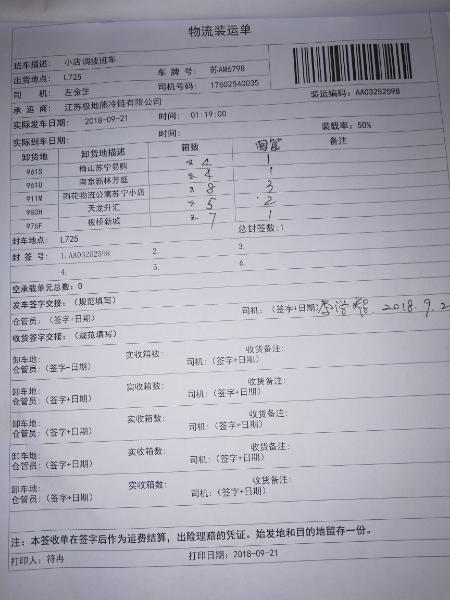 物流装运单
班车描述: 小店调拨班车
出货地点: L725 车牌号: 苏AM6798
司机: 左金生 司机号码: 17602540035
承运商: 江苏极地熊冷链有限公司 装运编码: AA03252598
实际发车日期: 2018-09-21 时间: 01:19:00
实际到车日期: 时间: 装载率: 50%
卸货地 卸货地描述 箱数 回筐 备注
961S 梅山苏宁易购 4 1
961U 南京新林芳庭 4 1
911M 雨花物流公寓苏宁小店 8 3
980H 天龙升汇 5 2
976F 板桥新城 7 1
封车地点: L725 总封签数:1
封签号: 1.AA03252598 2. 3.
4. 5. 6.
空承载单元总数: 0
发车签字交接: (规范填写)
仓管员: (签字+日期) 司机: (签字+日期) 2018.9.2
收货签字交接: (规范填写)
卸车地: 实收箱数: 收货备注:
仓管员: (签字+日期) 司机: (签字+日期)
卸车地: 实收箱数: 收货备注:
仓管员: (签字+日期) 司机: (签字+日期)
卸车地: 实收箱数: 收货备注:
仓管员: (签字+日期) 司机: (签字+日期)
卸车地: 实收箱数: 收货备注:
仓管员: (签字+日期) 司机: (签字+日期)
卸车地: 实收箱数: 收货备注:
仓管员: (签字+日期) 司机: (签字+日期)
注: 本签收单在签字后作为运费结算, 出险理赔的凭证。始发地和目的地留存一份。
打印人: 符冉 打印日期: 2018-09-21